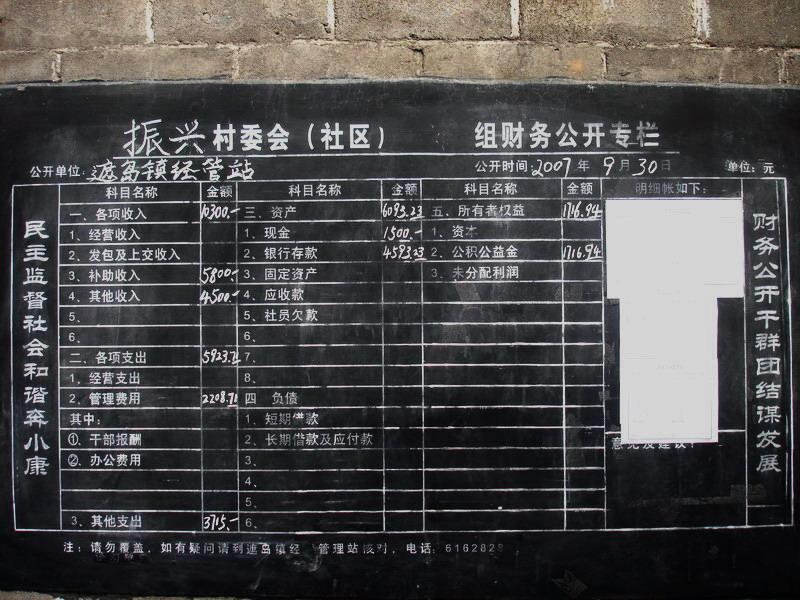 振兴村委会（社区） 组财务公开专栏
公开单位：遮岛镇经管站 公开时间：2007年9月30日 单位：元
民主监督社会和谐奔小康
科目名称 金额 科目名称 金额 科目名称 金额 明细帐如下：
一、各项收入 10300.- 三、资产 6093.23 五、所有者权益 1716.94
1、经营收入 1、现金 1500.- 1、资本
2、发包及上交收入 2、银行存款 4593.23 2、公积公益金 1716.94
3、补助收入 5800.- 3、固定资产 3、未分配利润
4、其他收入 4500.- 4、应收款
5、 5、社员欠款
6、 6、
二、各项支出 5923.71 7、
1、经营支出 8、
2、管理费用 2208.71 四 负债
其中： 1、短期借款
①、干部报酬 2、长期借款及应付款 意见及建议：
②、办公费用 3、
4、
5、
3、其他支出 3715.- 6、
财务公开干群团结谋发展
注：请勿覆盖，如有疑问请到遮岛镇经 管理站核对，电话：6162828